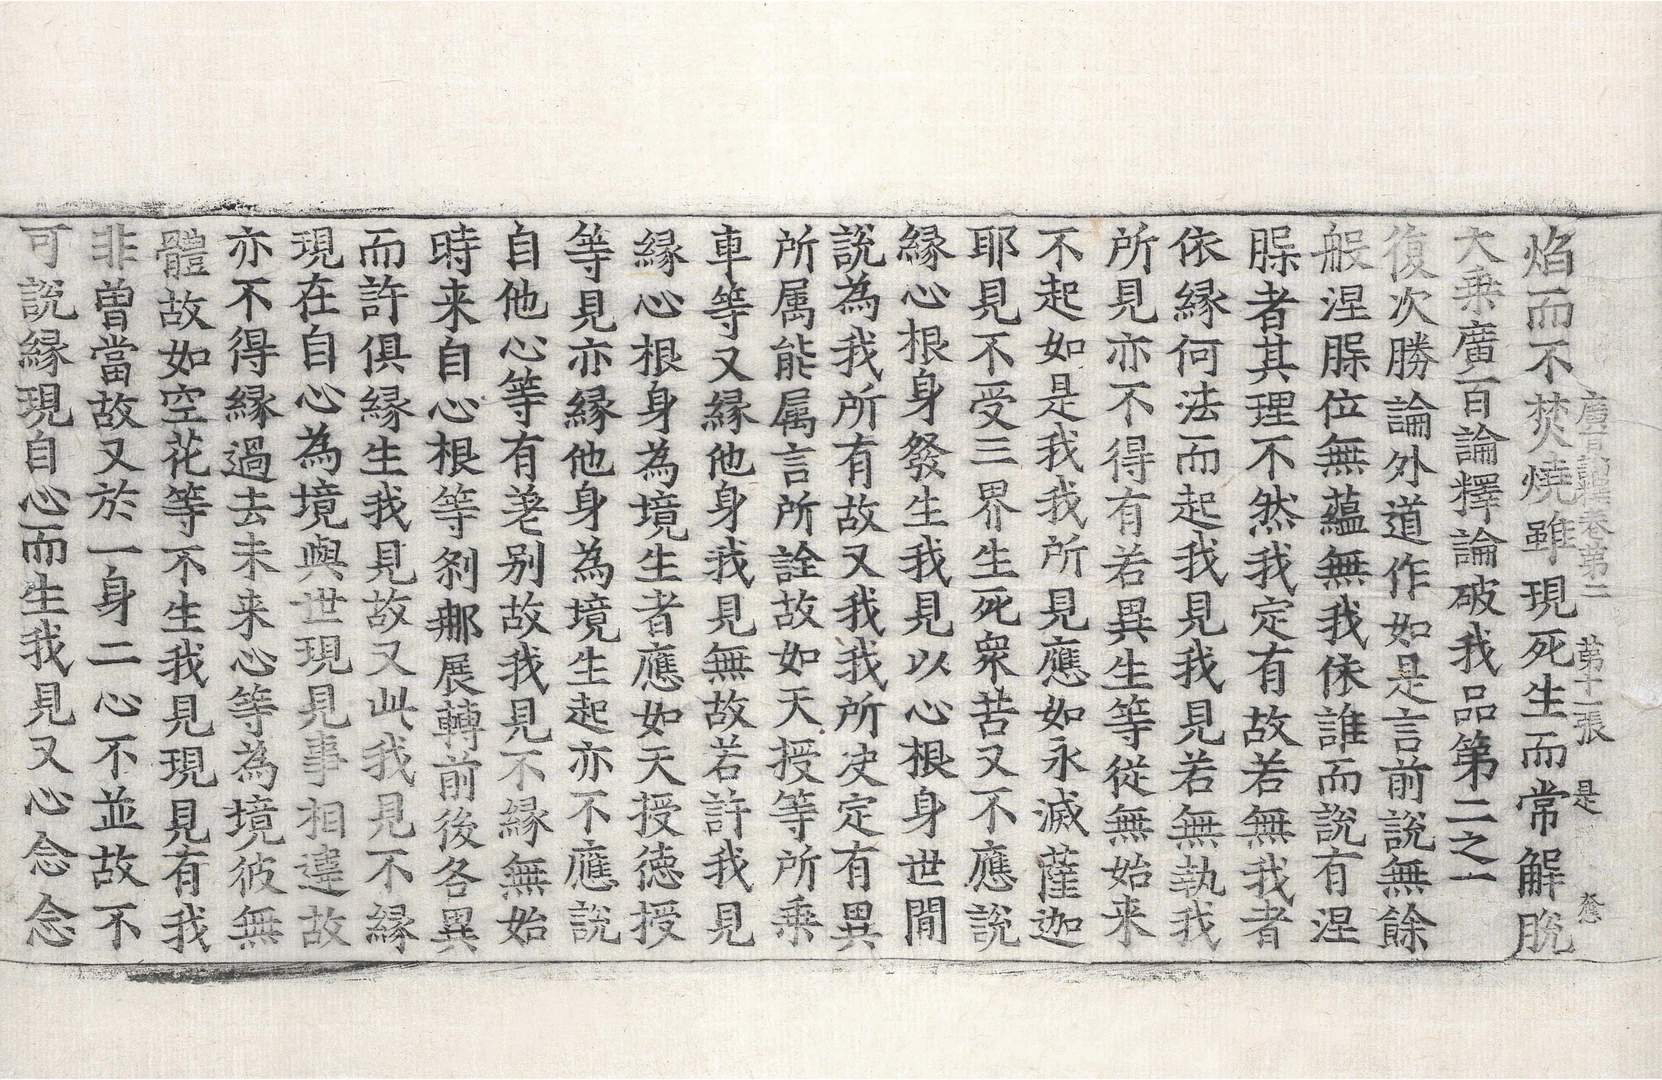 廣百論釋卷第二 第十一張 是
焰而不焚燒雖現死生而常解脫
大乘廣百論釋論破我品第二之一
復次勝論外道作如是言前說無餘
般涅槃位無蘊無我依誰而說有涅
槃者其理不然我定有故若無我者
依緣何法而起我見我見若無執我
所見亦不得有若異生等從無始来
不起如是我我所見應如永滅薩迦
耶見不受三界生死衆苦又不應說
緣心根身發生我見以心根身世間
說為我所有故又我我所决定有異
所属能属言所詮故如天授等所乘
車等又緣他身我見無故若許我見
緣心根身為境生者應如天授德授
等見亦緣他身為境生起亦不應說
自他心等有差别故我見不緣無始
時来自心根等剎那展轉前後各異
而許俱緣生我見故又此我見不緣
現在自心為境與世現見事相違故
亦不得緣過去未来心等為境彼無
體故如空花等不生我見現見有我
非曾當故又於一身二心不並故不
可說緣現自心而生我見又心念念